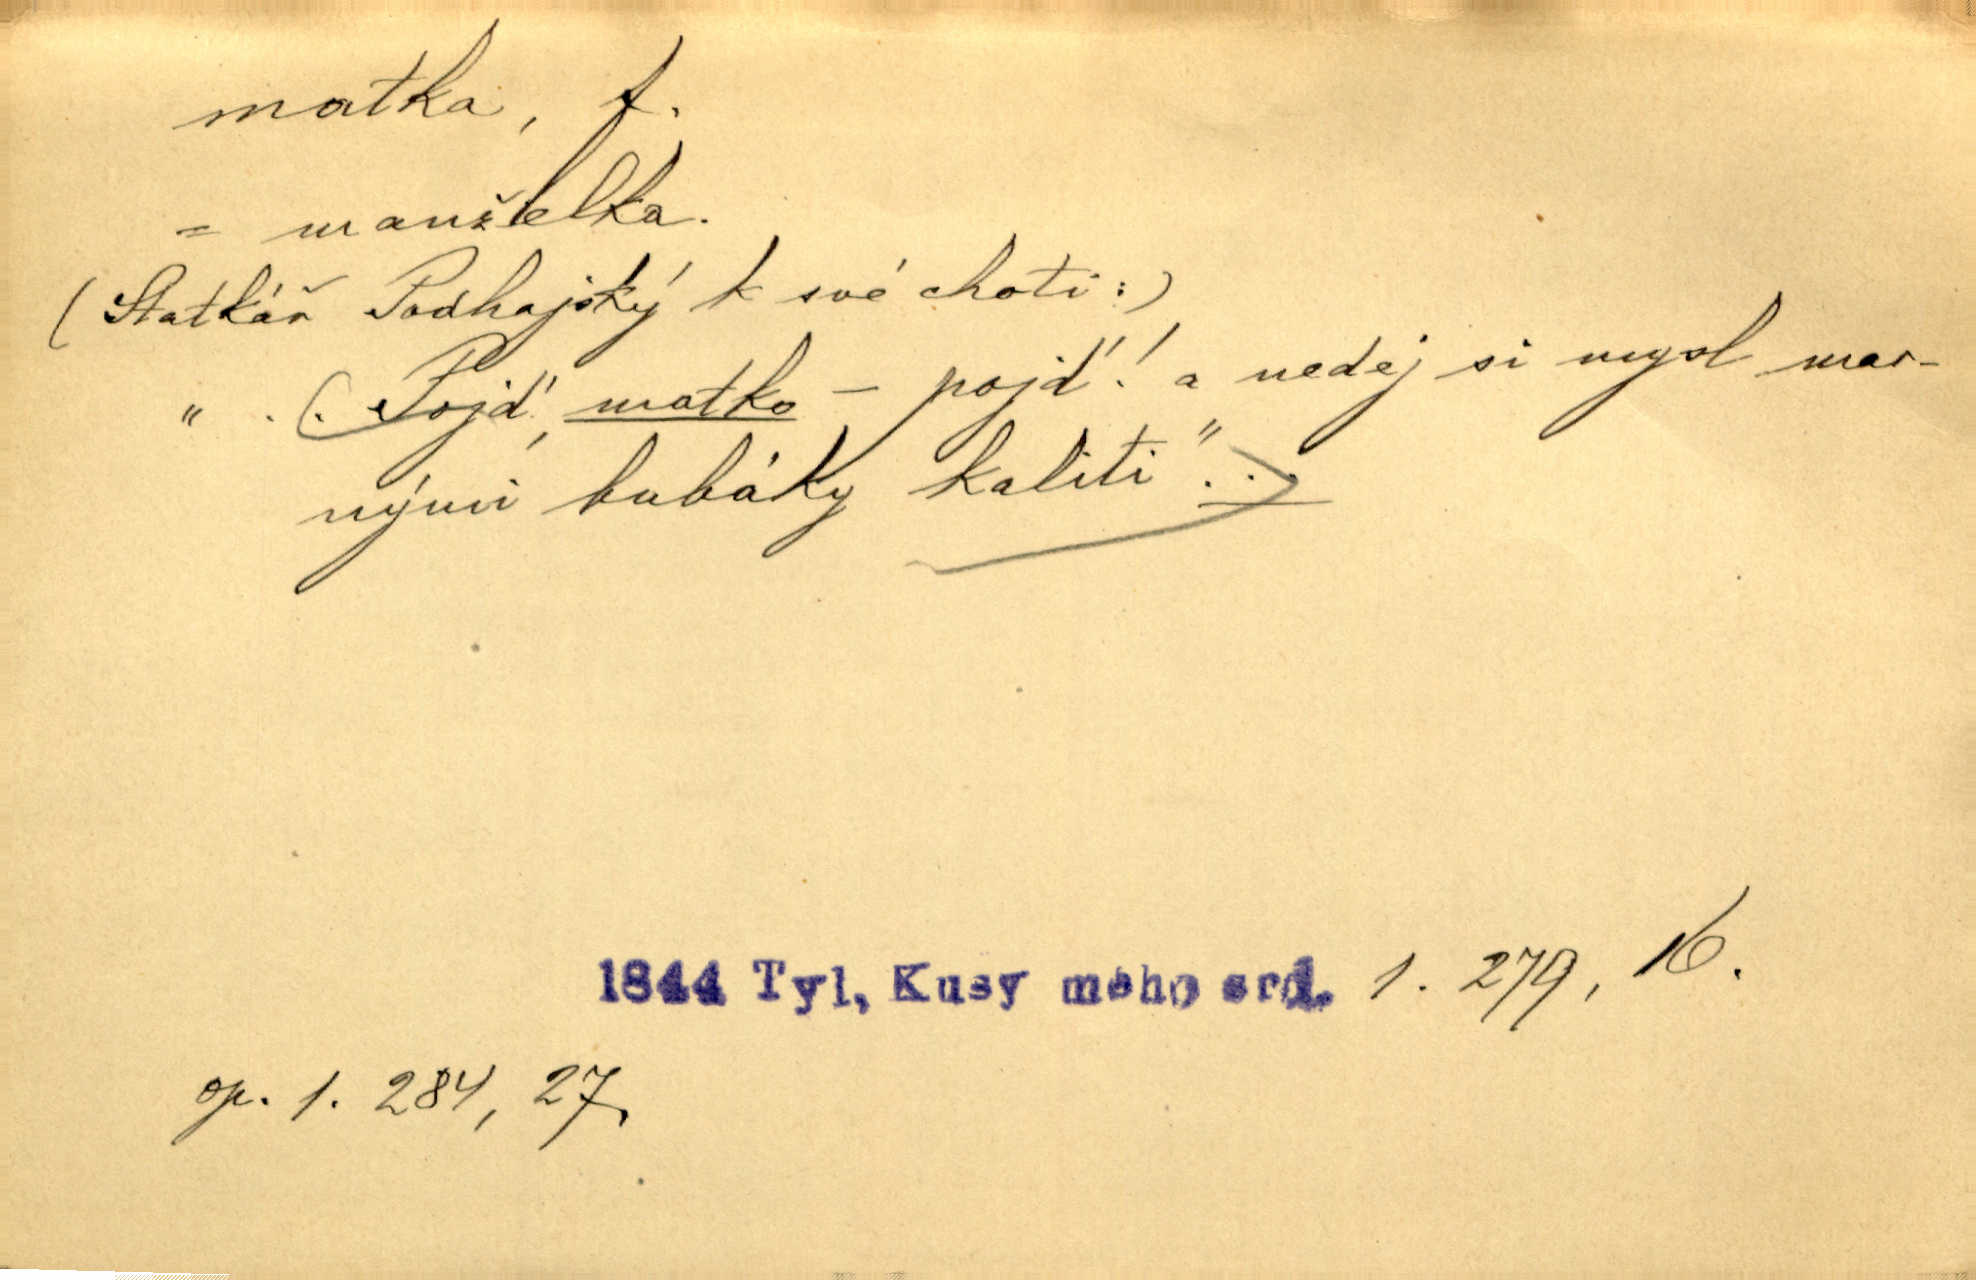 matka, f.
= manželka.
(Statkář Podhajský k své choti:)
„ . (. Pojď, matko – pojď! a nedej si mysl mar-
nými bubáky kaliti" ...
1844 Tyl, Kusy mého srd. 1. 279, 16.
op. 1. 284, 27.